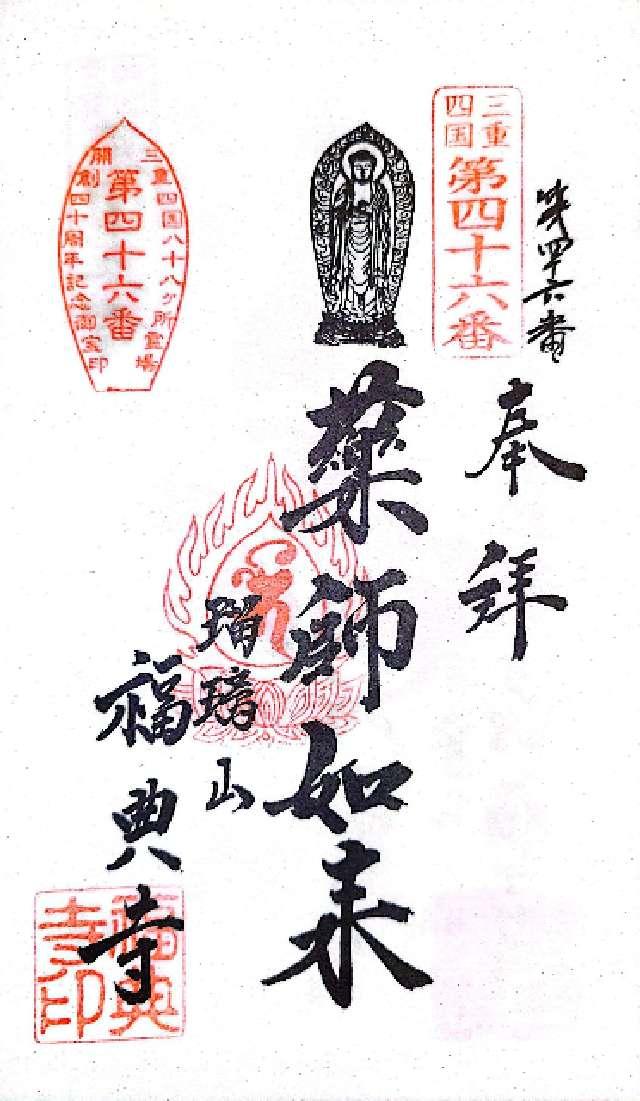 三重
四国
第四十六番
第四十六番
奉拝
薬師如来
瑠璃山
福典寺
三重四国八十八ヶ所霊場
第四十六番
開創四十周年記念御宝印
福典
寺印